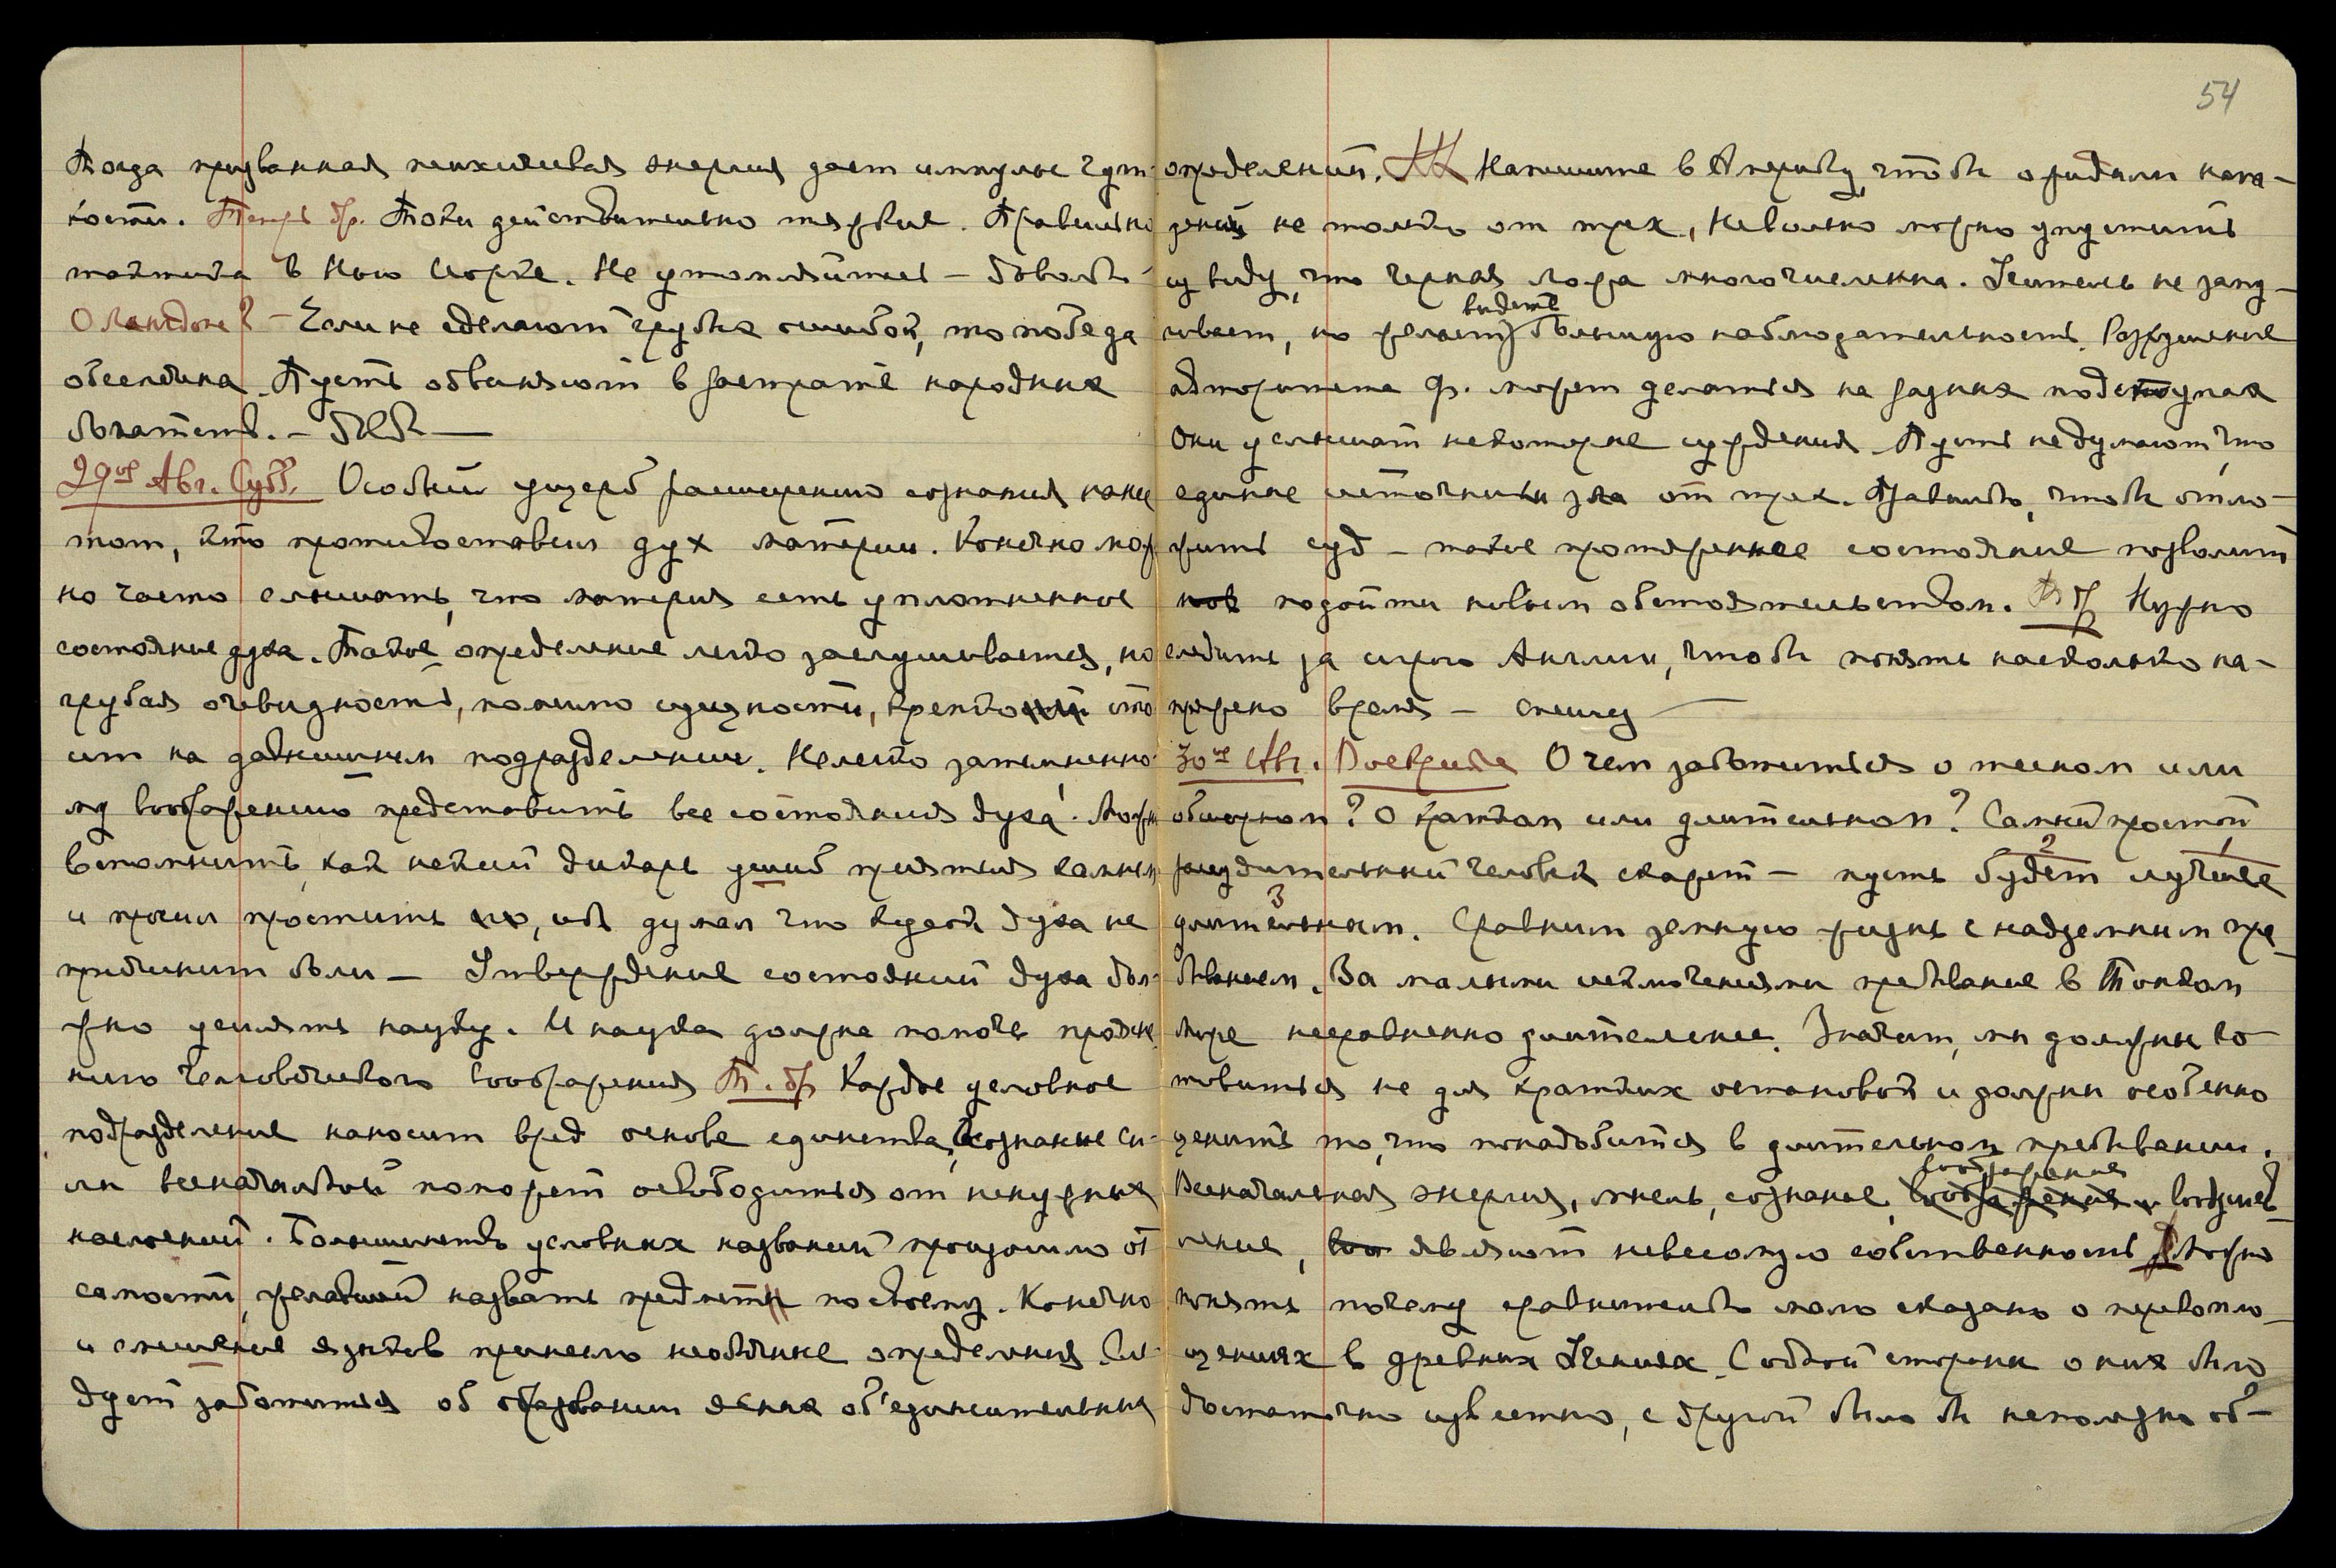 Тогда призванная психическая энергия дает импульс чут-
кости. Теперь др. Токи действительно тяжкие. Правильна
тактика в Нью Иорке. Не утомляйтесь – довольно
О Ландоне? – Если не сделают грубых ошибок, то победа
обеспечена. Пусть обвиняют в растрате народных
богатств. –
29ое Авг. Субб. Особый ущерб расширению сознания нане
тот, кто противоставил дух материи. Конечно мож
но часто слышать, что материя есть уплотненное
состояние духа. Такое определение легко заслушивается, но
грубая очевидность, помимо сущности, крепко сто
ит на давнишнем подразделении. Нелегко затемненно-
му воображению представить все состояния духа. Можно
вспомнить, как некий дикарь ушиб приятеля камнем
и просил простить его, ибо думал что кусок духа не
причинит боли – Утверждение состояний духа дол-
жно усилять науку. И наука должна помочь просве
нию человеческого воображения Т. др Каждое условное
подразделение наносит вред основе единства, осознание си-
лы всеначальной поможет освободиться от ненужных
наслоений. Большинство условных названий произошло от
самости, желавшей назвать предметы по своему. Конечно
и смешение языков принесло необычные определения. Сле-
дует заботиться об образовании ясных об'единительных
54
определений. Напишите в Америку, чтобы ожидали напа-
дений не только от трех, Невольно можно упустить
из виду, что черная ложа многочисленна. Учитель не запу-
гивает, но желает видеть большую наблюдательность. Разрушение
авторитета Фр. может делаться на разных подступах
Они услышат некоторые суждения Пусть не думают, что
единые источники зла от трех. Правильно, чтобы отло-
жить суд – такое протяженное состояние позволит
нов подойти новым обстоятельствам. Т др Нужно
следить за игрою Англии, чтобы понять насколько на-
пряжено время – спешу
30ое Авг. Воскрисение О чем заботиться о тесном или
обширном? О кратком или длительном? Самый простой
рассудительный человек скажет – пусть будет лучшее
длительным. Сравним земную жизнь с надземным пре-
быванием. За малыми исключениями пребывание в Тонком
Мире несравненно длительнее. Значит, мы должны го
товиться не для кратких остановок и должны особенно
ценить то, что понадобится в длительном пребывании.
Всеначальная энергия, мысль, сознание, воображение воображение и воодушев
ление, воо являют невесомую собственность Можно
понять почему сравнительно мало сказано о перевопло-
щениях в древних Учениях. С одной стороны о них было
достаточно известно, с другой было бы неполезно об-